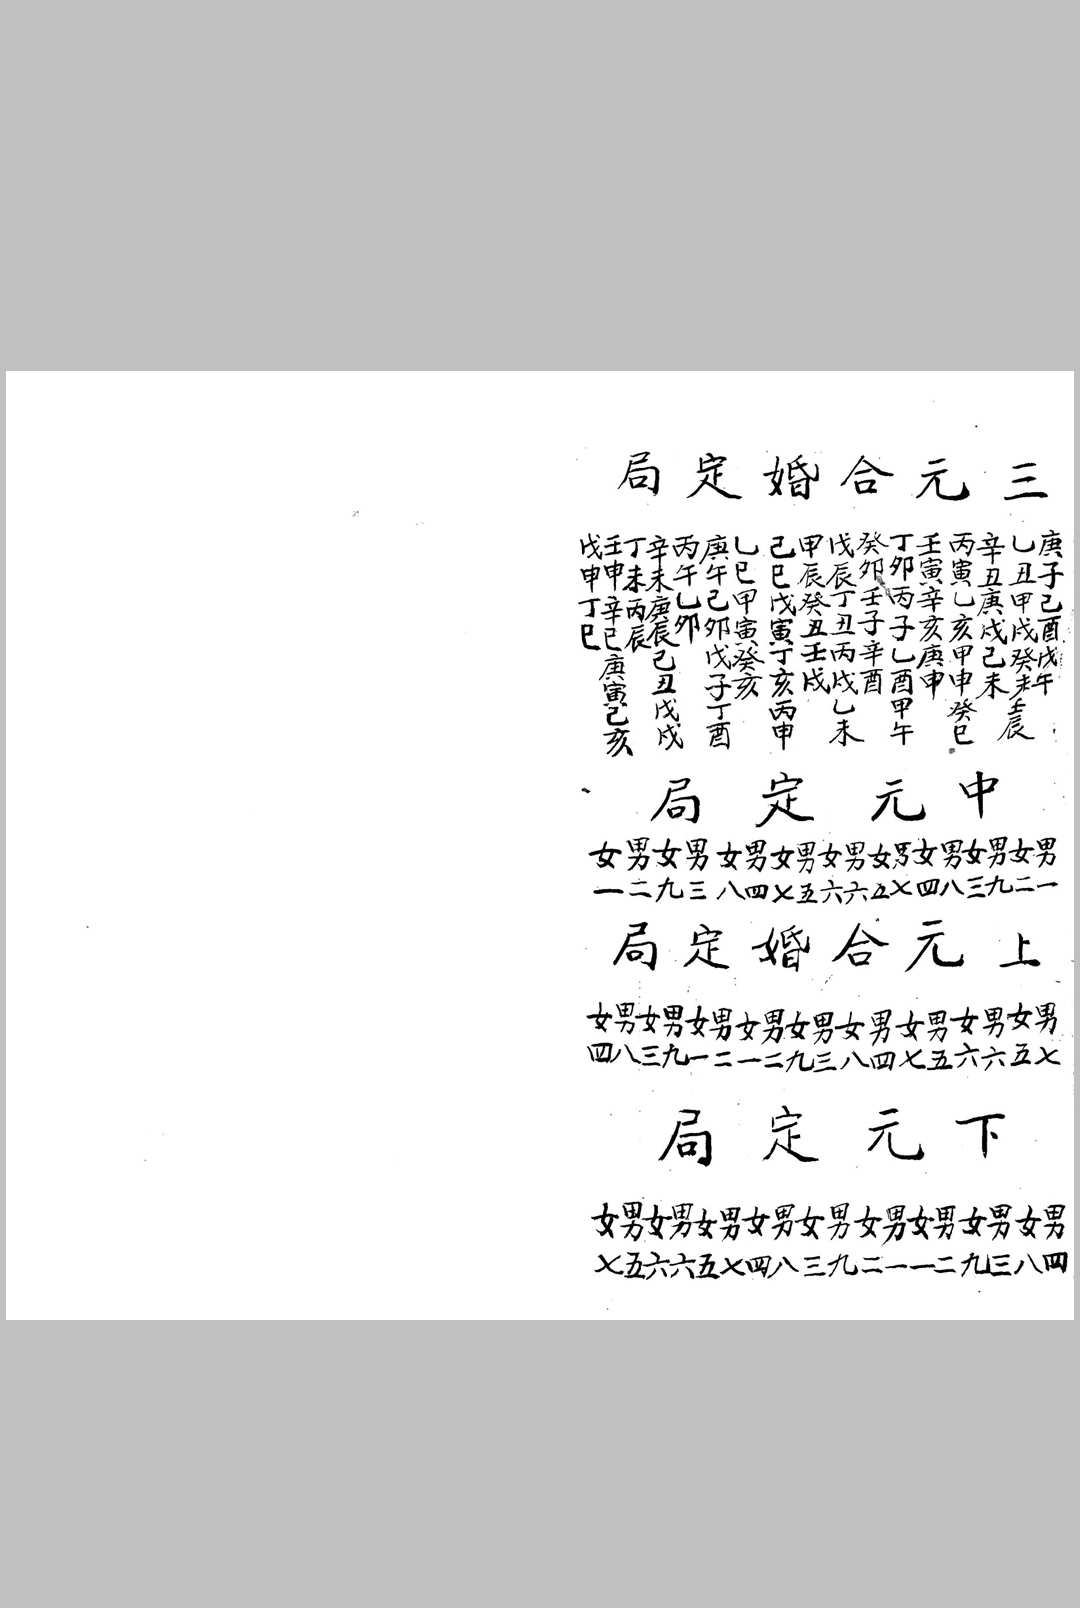 三元合婚定局
庚子己酉戊午
乙丑甲戌癸未壬辰
辛丑庚戌己未
丙寅乙亥甲申癸巳
壬寅辛亥庚申
丁卯丙子乙酉甲午
癸卯壬子辛酉
戊辰丁丑丙戌乙未
甲辰癸丑壬戌
己巳戊寅丁亥丙申
乙巳甲寅癸亥
庚午己卯戊子丁酉
丙午乙卯
辛未庚辰己丑戊戌
丁未丙辰
壬申辛巳庚寅己亥
戊申丁巳
中元定局
男一
女二
男九
女三
男八
女四
男七
女五
男六
女六
男五
女七
男四
女八
男三
女九
男二
女一
上元合婚定局
男七
女五
男六
女六
男五
女七
男四
女八
男三
女九
男二
女一
男二
女一
男九
女三
男八
女四
下元定局
男四
女八
男三
女九
男二
女一
男一
女二
男九
女三
男八
女四
男七
女五
男六
女六
男五
女七